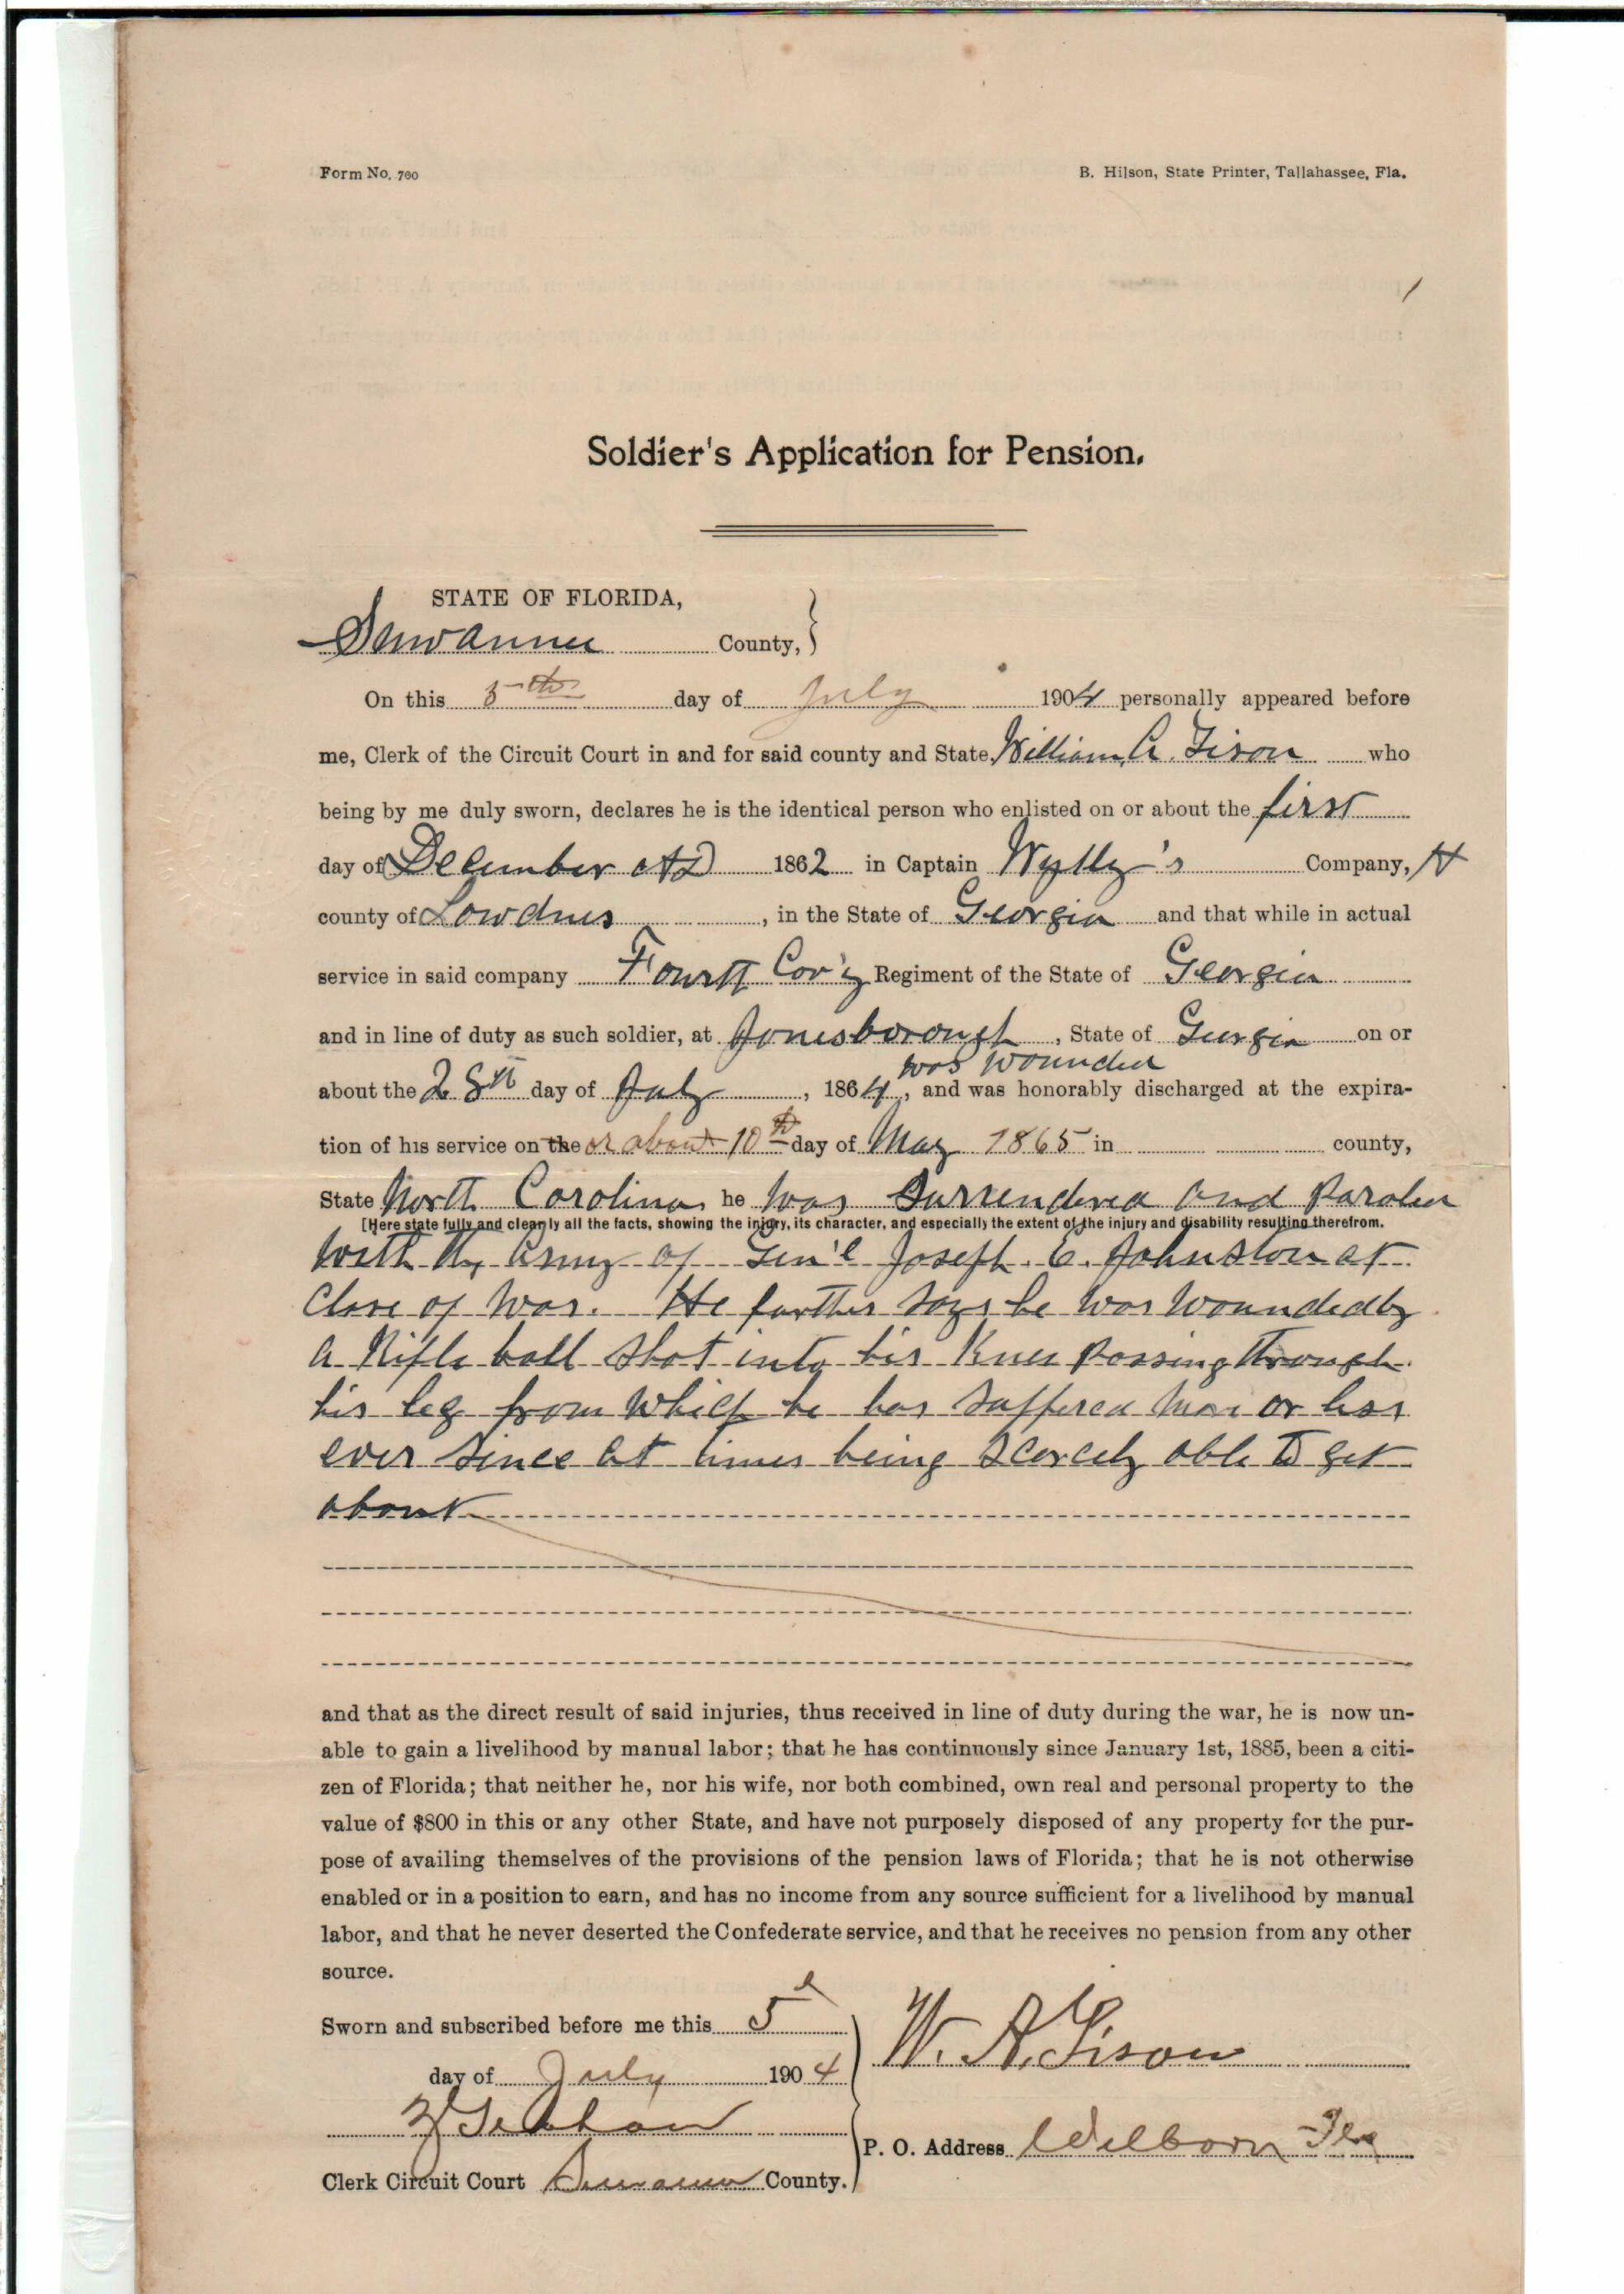 Form No. 700
B. Hilson, State Printer, Tallahassee, Fla.
Soldier's Application for Pension.
STATE OF FLORIDA,
Suwannee County,
On this 5th day of July 1904 personally appeared before
me, Clerk of the Circuit Court in and for said county and State, William A. Tison who
being by me duly sworn, declares he is the identical person who enlisted on or about the first
day of December AD 1862 in Captain Wylly's Company, H
county of Lowdnes, in the State of Georgia and that while in actual
service in said company Fourth Cav'y Regiment of the State of Georgia
and in line of duty as such soldier, at Jonesborough, State of Georgia on or
was wounded
about the 28th day of July, 1864, and was honorably discharged at the expira-
tion of his service on the or about 10th day of May 1865 in county,
State North Carolina he was Surrendered and Paroled
[Here state fully and clearly all the facts, showing the injury, its character, and especially the extent of the injury and disability resulting therefrom.
with the Army of Gen'l Joseph. E. Johnston at
Close of War. He further says he was wounded by
a Rifle ball shot into his Knee passing through
his leg from which he has suffered more or less
ever since at times being scarcely able to get
about
and that as the direct result of said injuries, thus received in line of duty during the war, he is now un-
able to gain a livelihood by manual labor; that he has continuously since January 1st, 1885, been a citi-
zen of Florida; that neither he, nor his wife, nor both combined, own real and personal property to the
value of $800 in this or any other State, and have not purposely disposed of any property for the pur-
pose of availing themselves of the provisions of the pension laws of Florida; that he is not otherwise
enabled or in a position to earn, and has no income from any source sufficient for a livelihood by manual
labor, and that he never deserted the Confederate service, and that he receives no pension from any other
source.
Sworn and subscribed before me this 5
day of July 1904
W. A. Tison
Clerk Circuit Court Suwannee County.
P. O. Address Welborn Fla